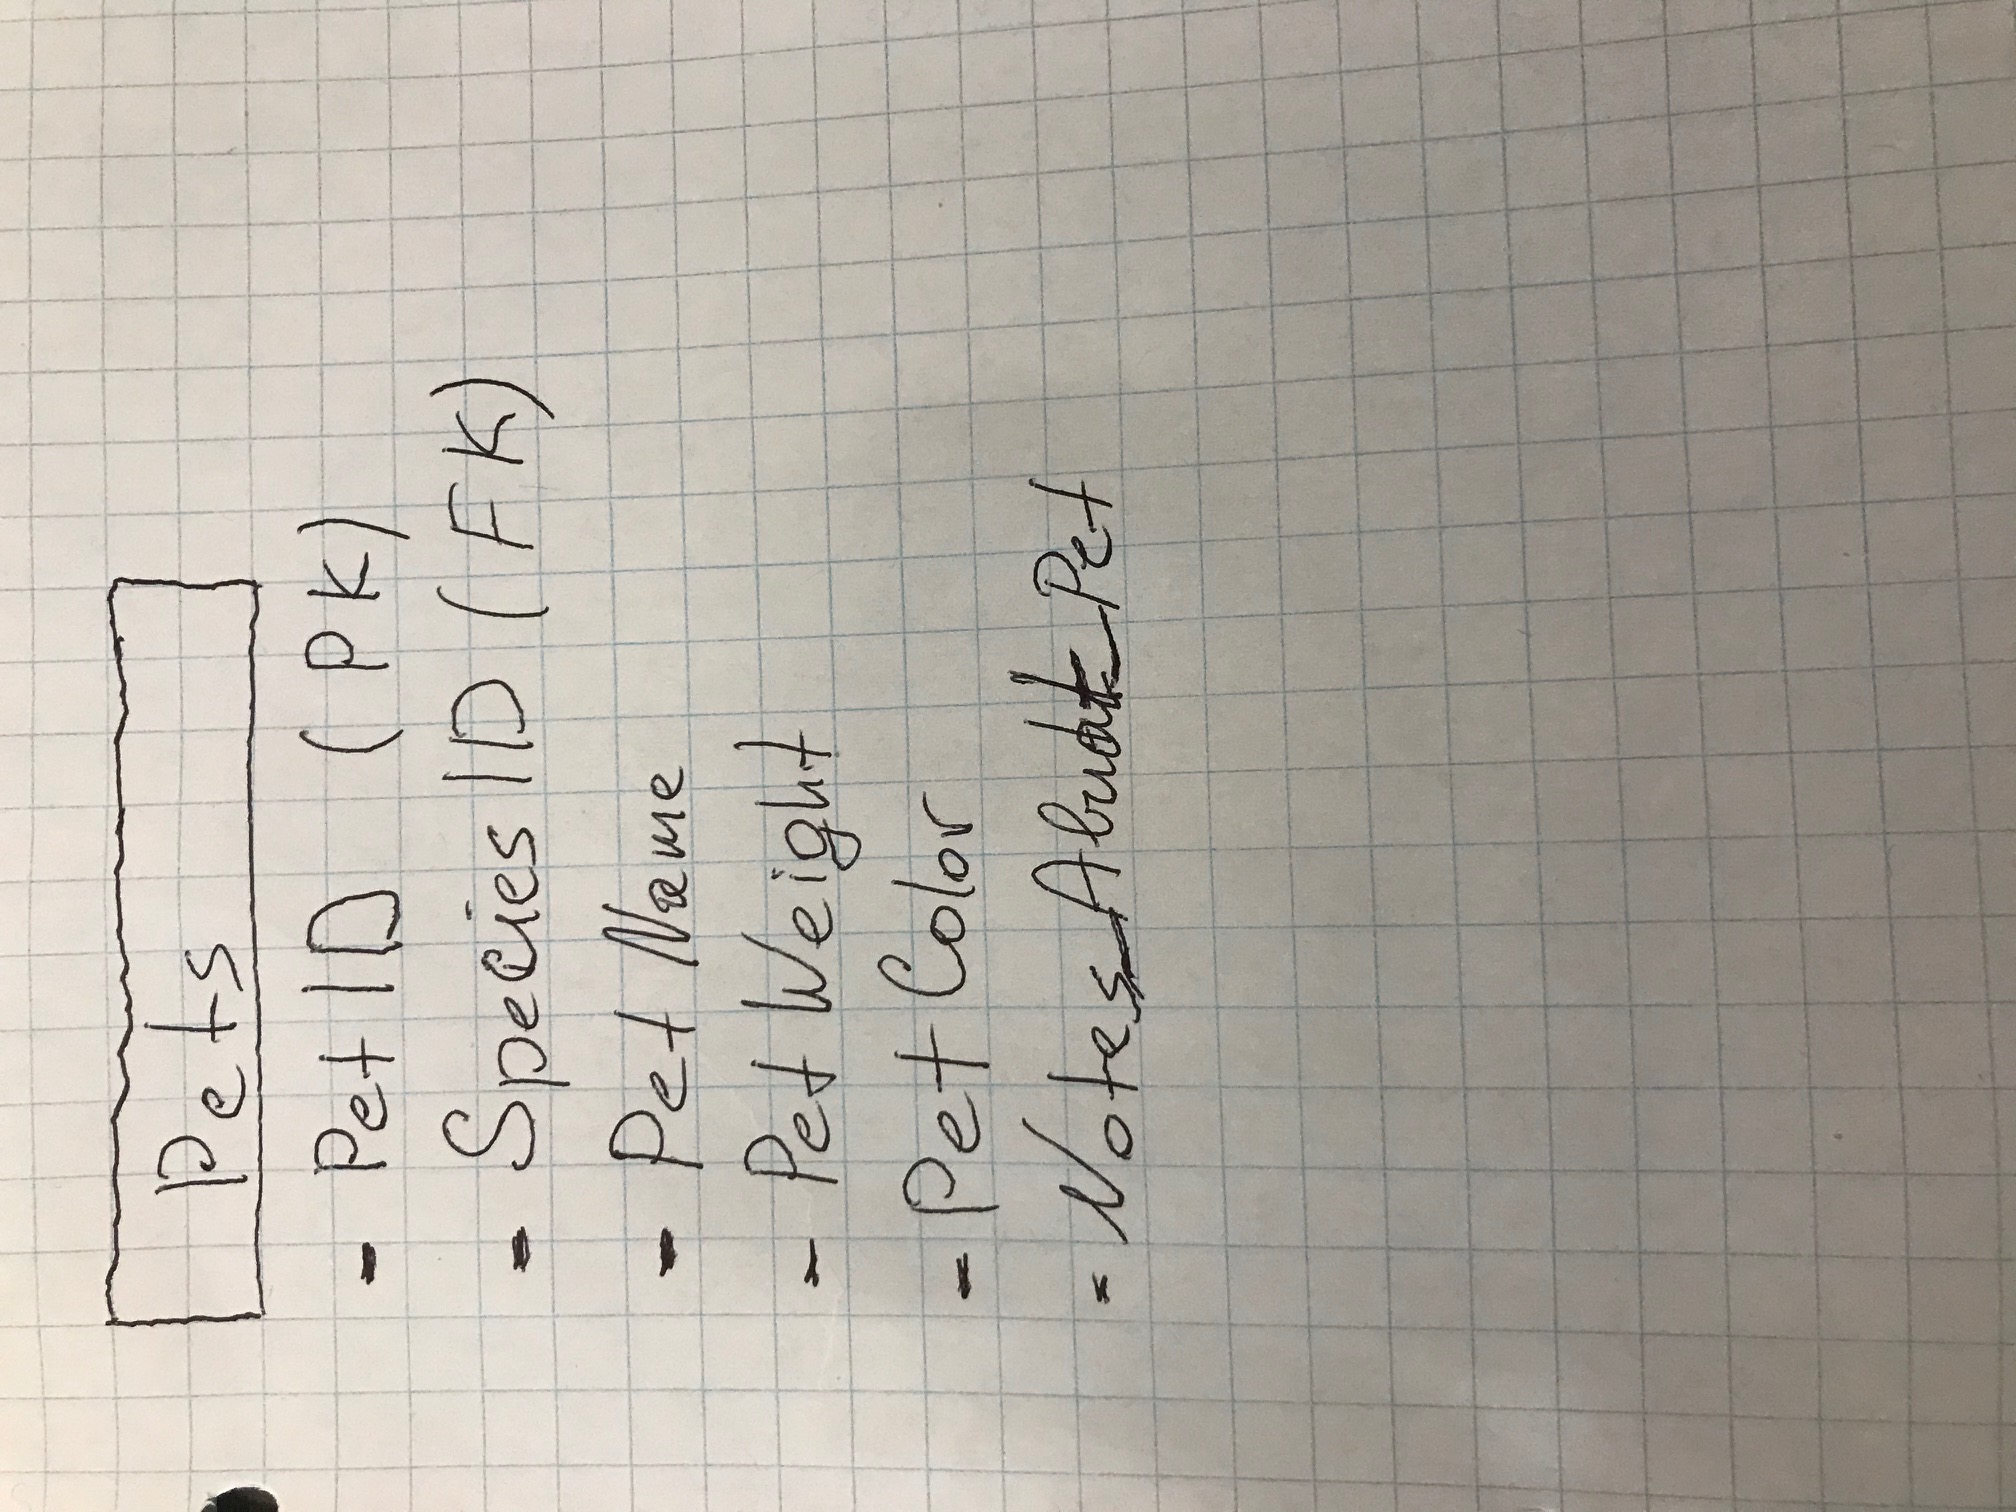 Pets
- Pet ID (PK)
- Species ID (FK)
- Pet Name
- Pet Weight
- Pet Color
- Notes_About_Pet